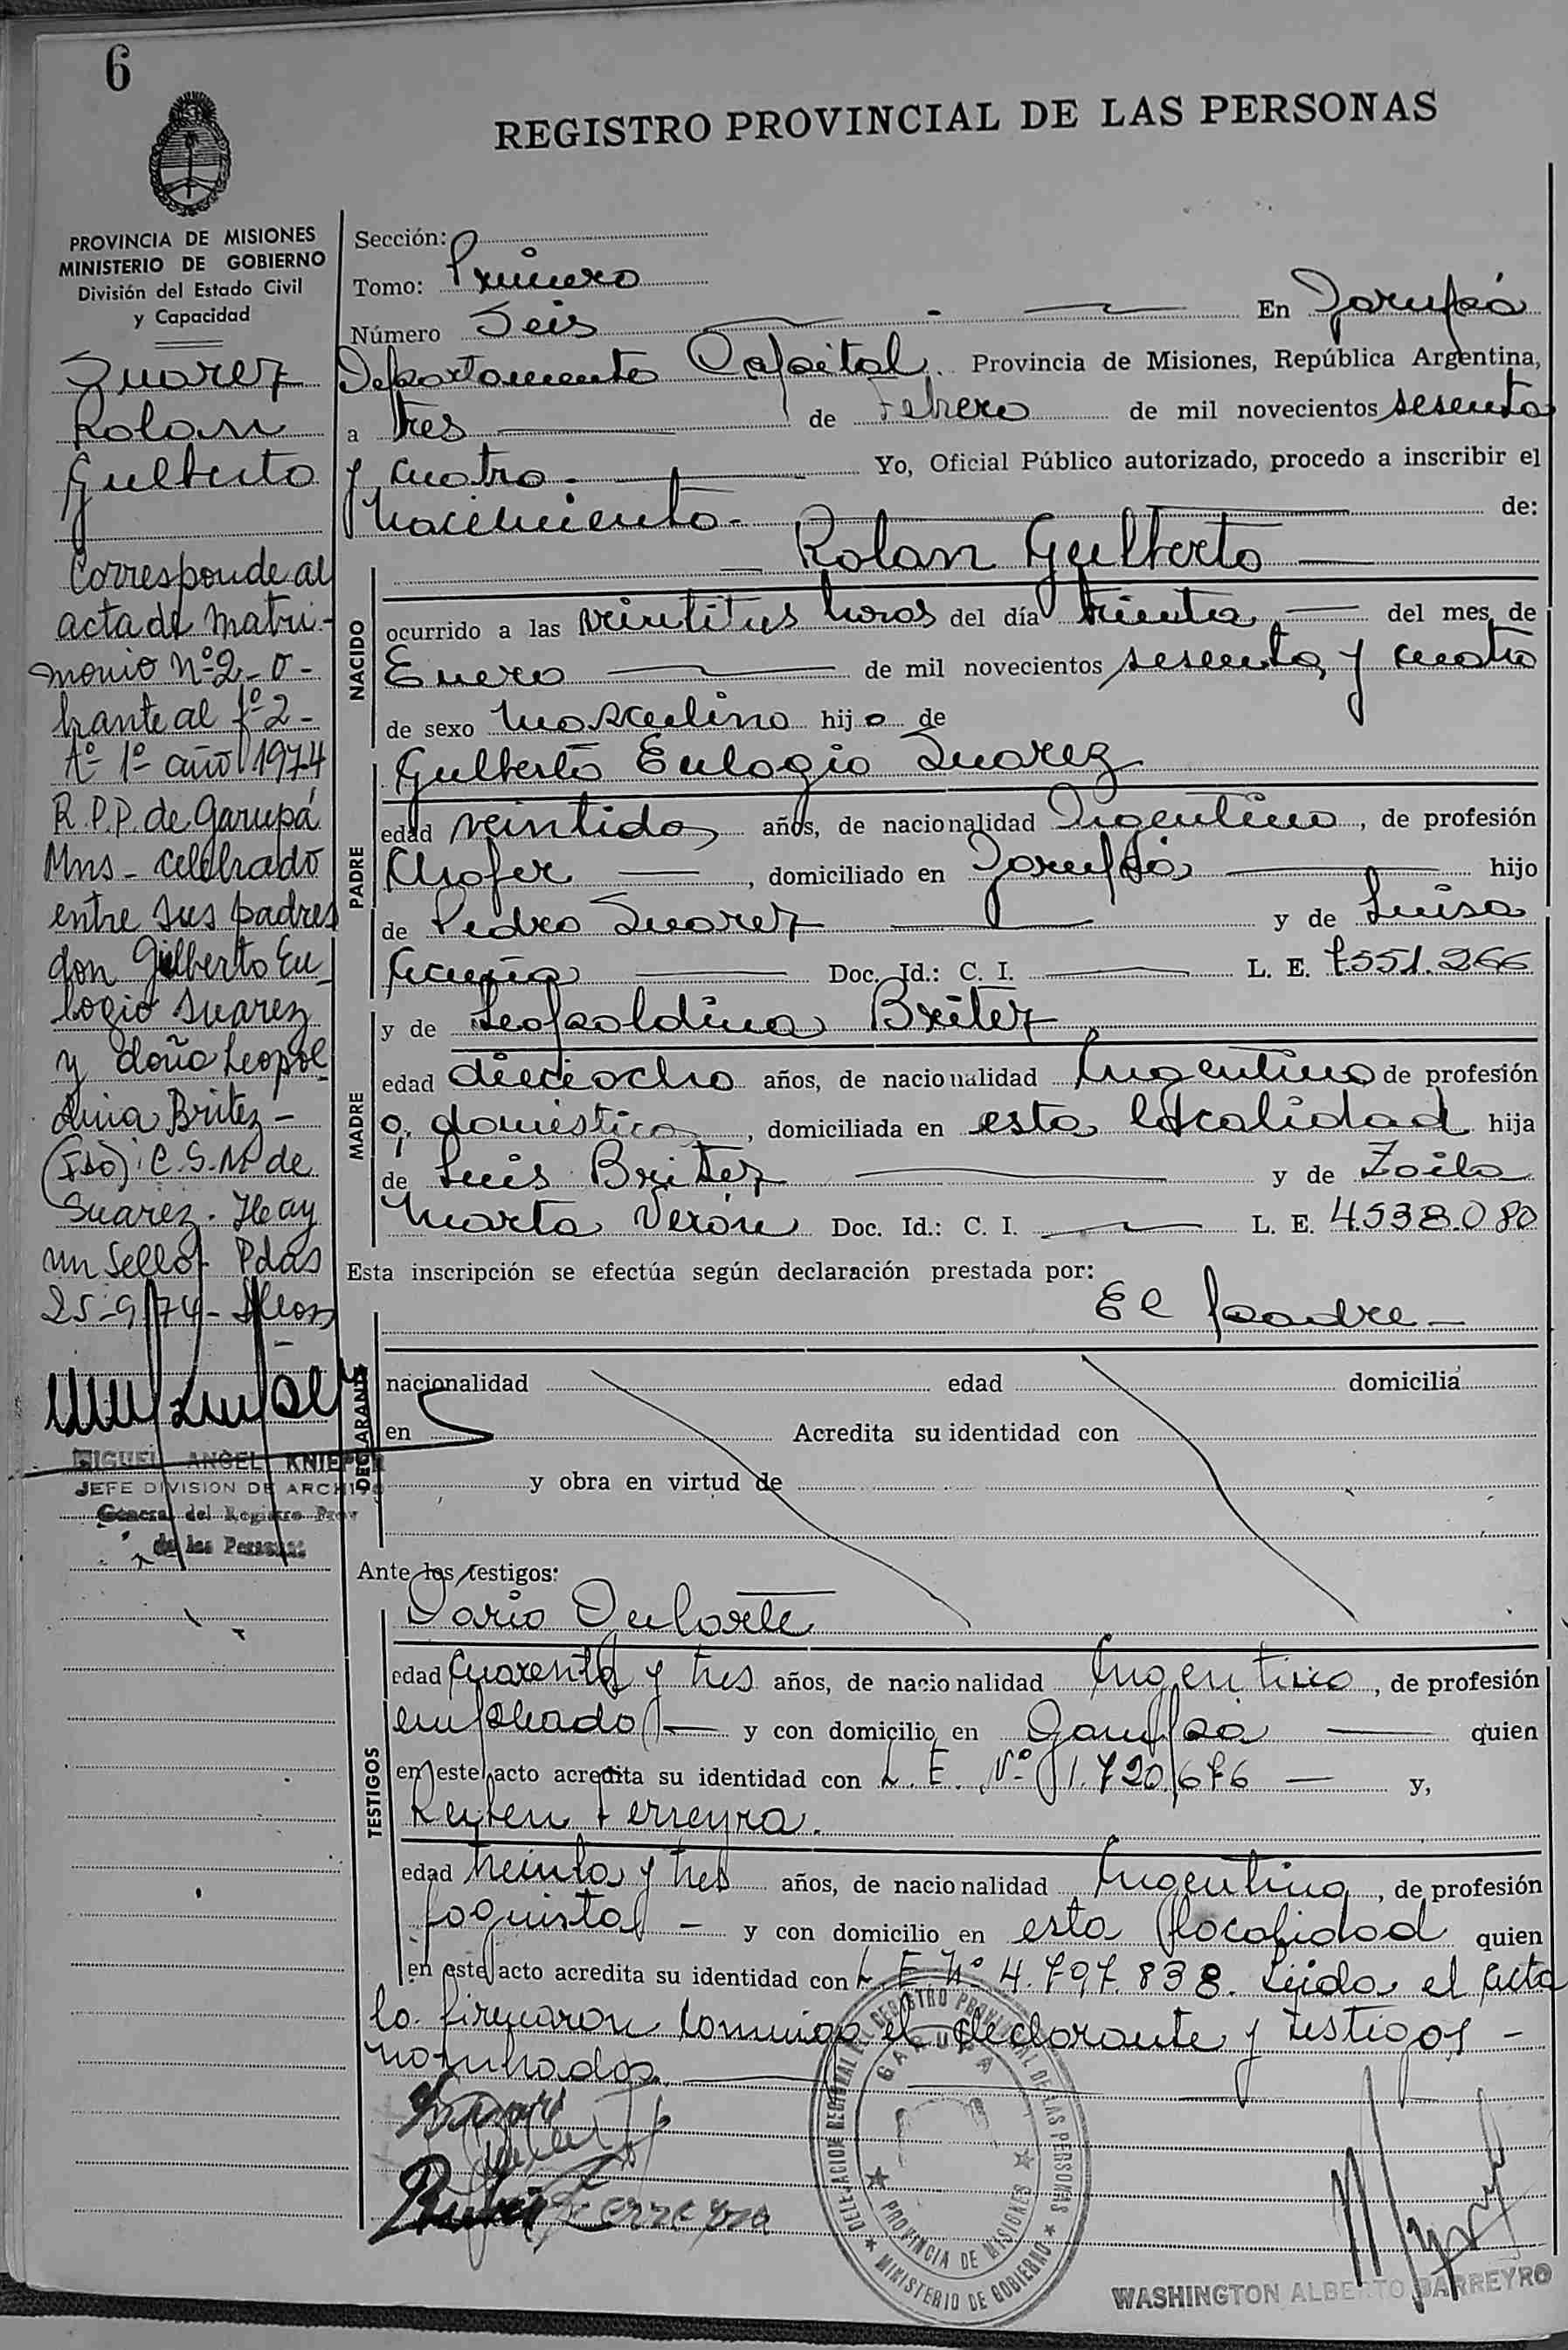 6
REGISTRO PROVINCIAL DE LAS PERSONAS
PROVINCIA DE MISIONES
MINISTERIO DE GOBIERNO
División del Estado Civil
y Capacidad
Suarez
Rolan
Gilberto
Corresponde al
acta de matri-
monio Nº 2 - o-
brante al fº 2 -
Tº 1º año 1974
R.P.P. de Garupá
Mns - celebrado
entre sus padres
don Gilberto Eu
logio Suarez
y doña Leopol
dina Britez -
(Fdo): C.S.M de
Suarez. Hay
un sello. Pdas
25-9-74-
MIGUEL ANGEL KNIEP
JEFE DIVISION DE ARCHIVO
General del Registro Prov
de las Personas
Sección:
Tomo: Primero
Número Seis En Garupá
Departamento Capital. Provincia de Misiones, República Argentina,
a tres de Febrero de mil novecientos sesenta
y cuatro. Yo, Oficial Público autorizado, procedo a inscribir el
Nacimiento- de:
Rolan Gilberto
NACIDO
ocurrido a las veintitres horas del día treinta del mes de
Enero de mil novecientos sesenta y cuatro
de sexo masculino hijo de
Gilberto Eulogio Suarez
PADRE
edad veintidos años, de nacionalidad Argentino, de profesión
Chofer, domiciliado en Garupá hijo
de Pedro Suarez y de Luisa
Acuña Doc. Id.: C. I. L. E. 7551.266
y de Leopoldina Britez
MADRE
edad dieciocho años, de nacionalidad Argentina de profesión
q. doméstica, domiciliada en esta localidad hija
de Luis Britez y de Zoila
Marta Veron Doc. Id.: C. I. L. E. 4538.080
Esta inscripción se efectúa según declaración prestada por:
El padre-
DECLARANTE
nacionalidad edad domicilia
en Acredita su identidad con
y obra en virtud de
Ante los testigos:
Dario Dularte
TESTIGOS
edad cuarenta y tres años, de nacionalidad Argentino, de profesión
empleado y con domicilio en Garupá quien
en este acto acredita su identidad con L. E. Nº 1.720.676 y,
Ruben Ferreyra.
edad treinta y tres años, de nacionalidad Argentina, de profesión
foguista - y con domicilio en esta localidad quien
en este acto acredita su identidad con L. E Nº 4.797.838. Leida el acta
la firmaron conmigo el declarante y testigos -
nombrados.
Ruben Ferreyra
DELEGACION REGIONAL DEL REGISTRO PROVINCIAL DE LAS PERSONAS
GARUPA
PROVINCIA DE MISIONES
MINISTERIO DE GOBIERNO
WASHINGTON ALBERTO BARREYRO